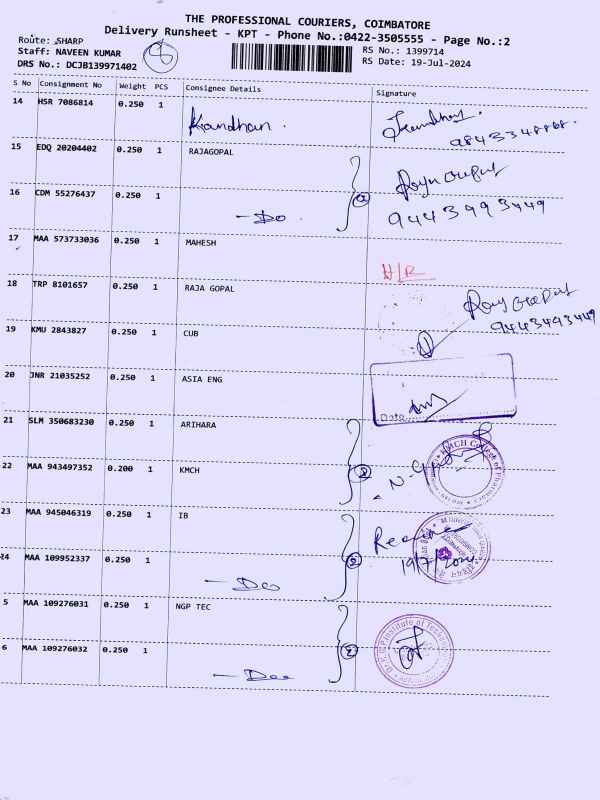 THE PROFESSIONAL COURIERS, COIMBATORE
Delivery Runsheet - KPT - Phone No.:0422-3505555 - Page No.:2
Route: SHARP
Staff: NAVEEN KUMAR
DRS No.: DCJB139971402
8
RS No.: 1399714
RS Date: 19-Jul-2024
S No Consignment No Weight PCS Consignee Details Signature
14 HSR 7086814 0.250 1 Kandhan.
9843348868.
15 EDQ 20204402 0.250 1 RAJAGOPAL
16 CDM 55276437 0.250 1 - Do. 2
9443993449
17 MAA 573733036 0.250 1 MAHESH
H/R
18 TRP 8101657 0.250 1 RAJA GOPAL
9443493449
19 KMU 2843827 0.250 1 CUB
20 JNR 21035252 0.250 1 ASIA ENG
Date
21 SLM 350683230 0.250 1 ARIHARA
22 MAA 943497352 0.200 1 KMCH 2
KMCH College of Pharmacy
23 MAA 945046319 0.250 1 IB
Received
19/7/2024
24 MAA 109952337 0.250 1 - Do 2
5 MAA 109276031 0.250 1 NGP TEC
6 MAA 109276032 0.250 1 - Do 2
Dr. N.G.P Institute of Technology